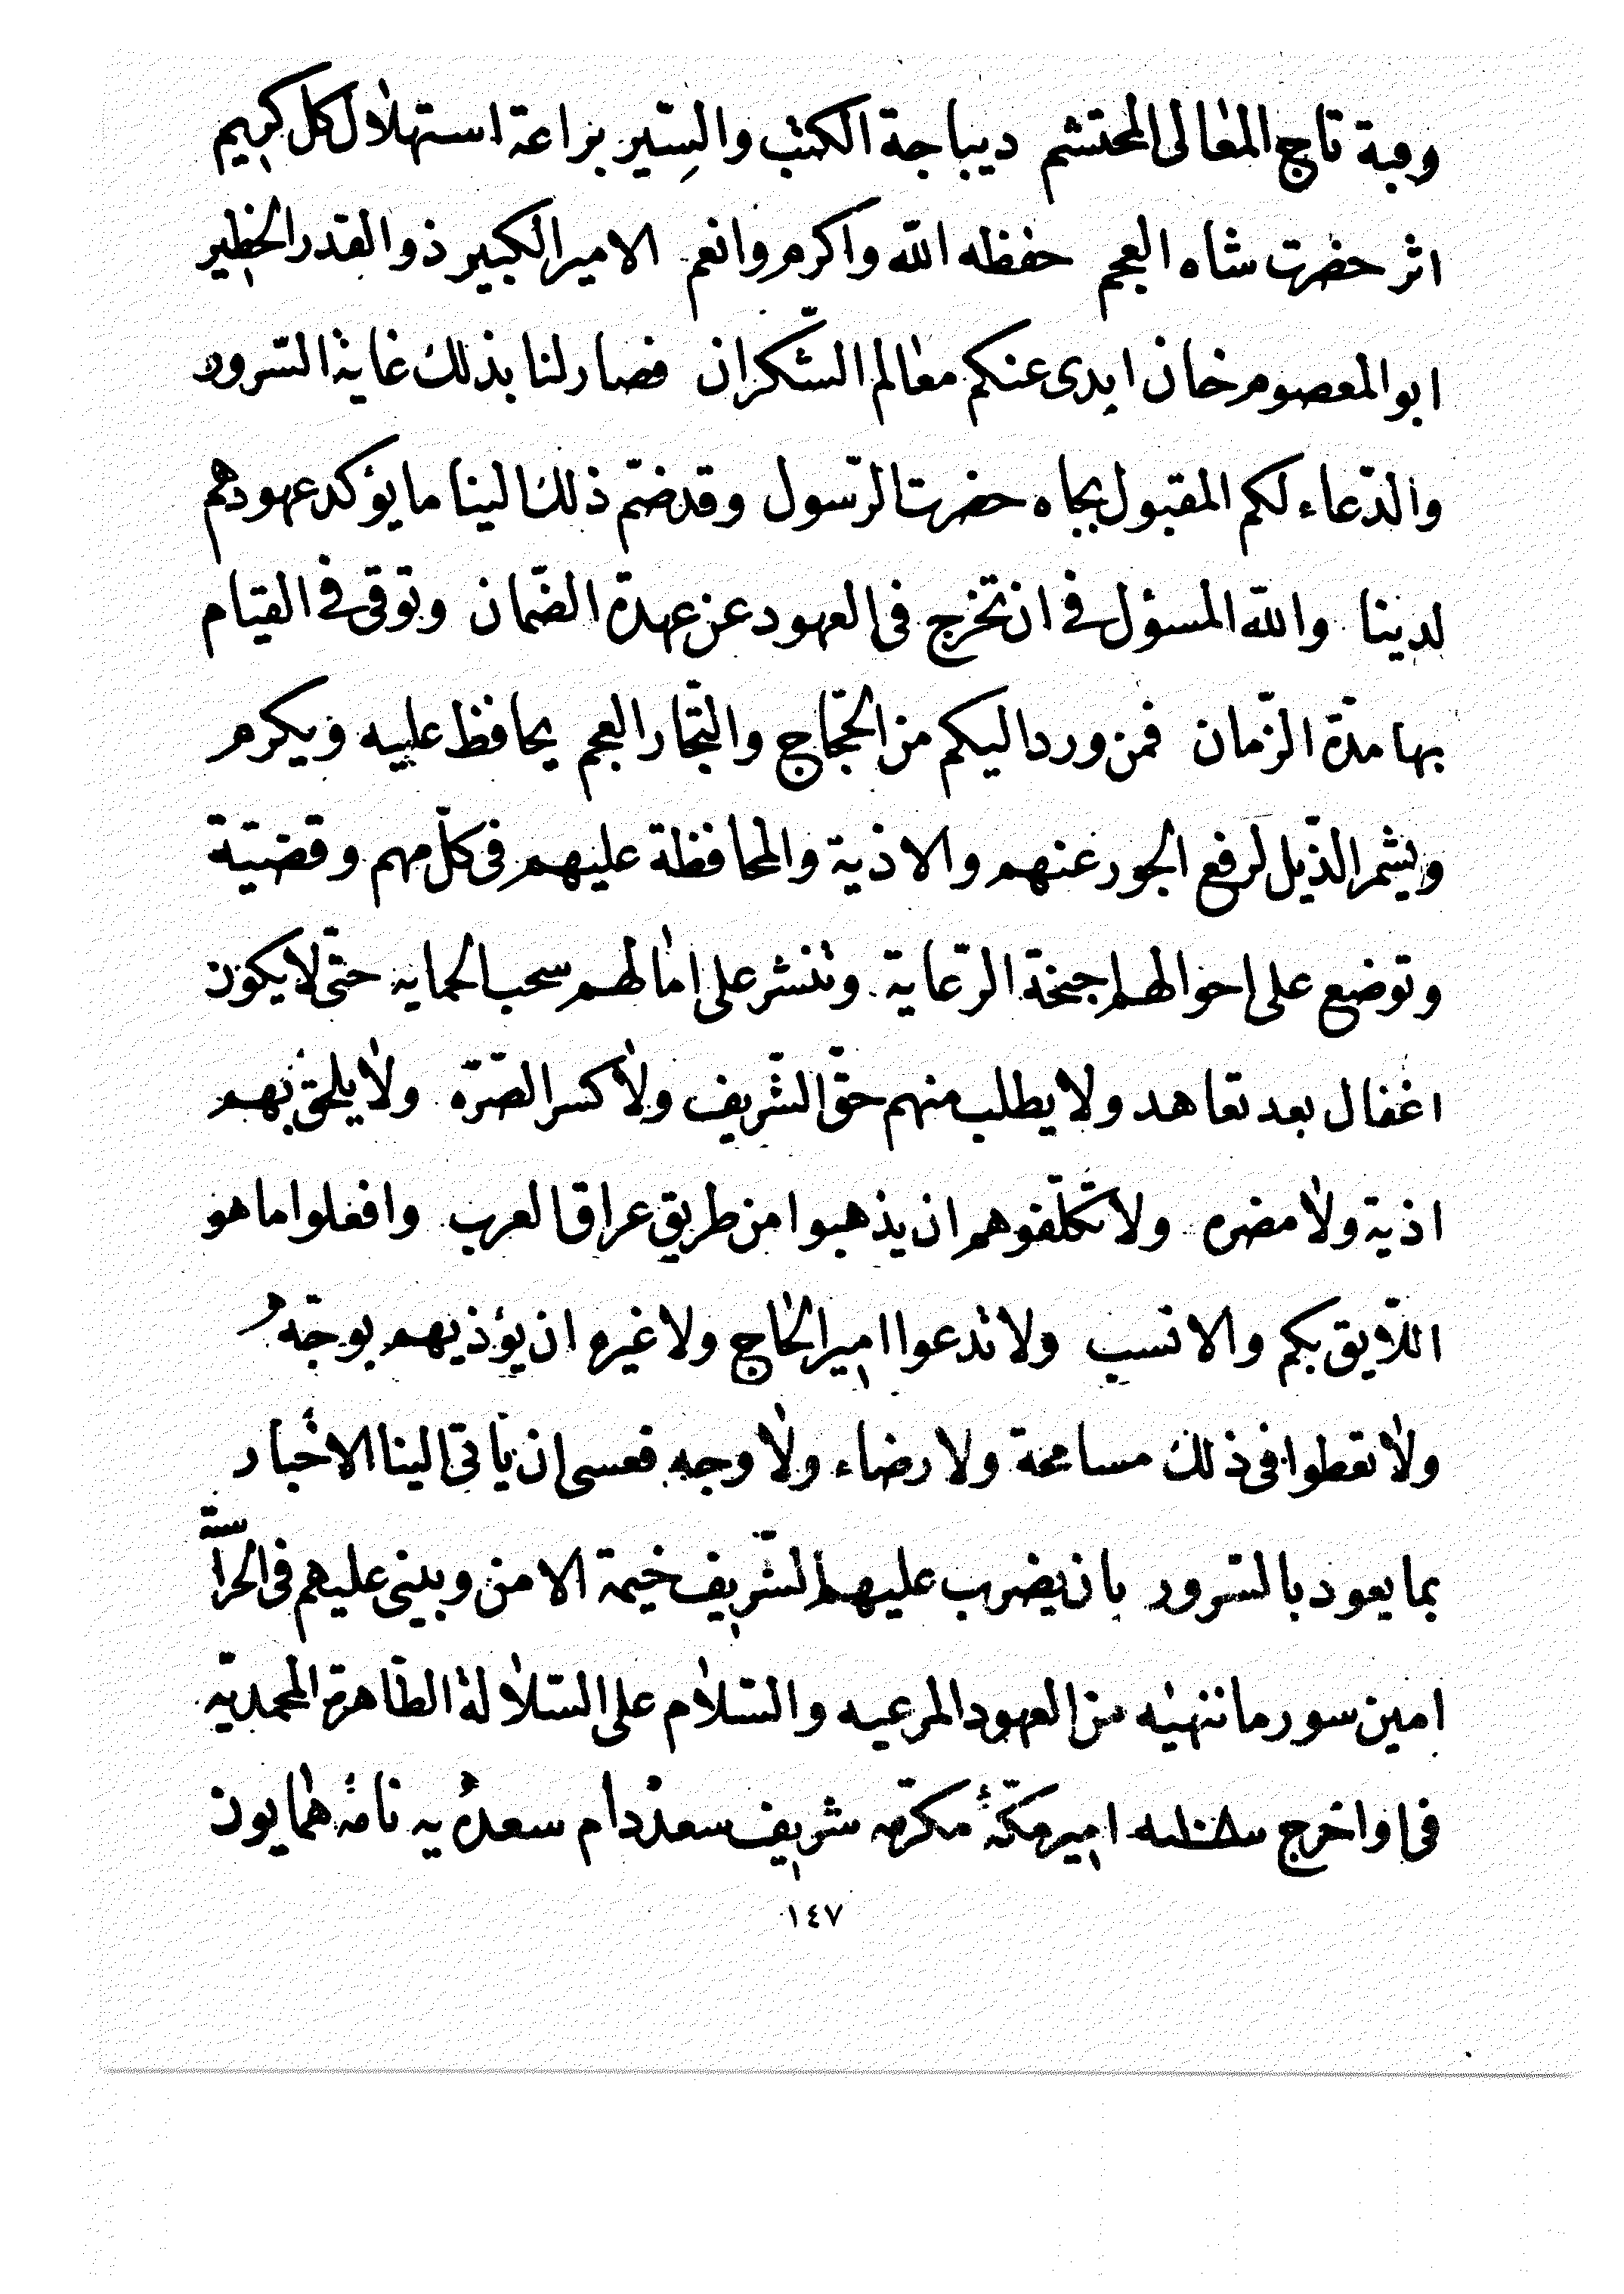 وقبة تاج المعالى المحتشم ديباجة الكتب والسير براعة استهلال كل كريم
اثر حضرت شاه العجم حفظه الله واكرم وانعم الامير الكبير ذو القدر الخطير
ابو المعصوم خان ابدى عنكم معالم الشكران فصار لنا بذلك غاية السرور
والدّعاء لكم المقبول بجاه حضرت الرّسول وقد ضمّ ذلك الينا ما يؤكد عهودهم
لدينا والله المسؤل فى ان تخرج فى العهود عن عهدة الضّمان وتوقى فى القيام
بها مدّة الزّمان فمن ورد اليكم من الحجّاج والتجّار العجم يحافظ عليه ويكرم
ويشمر الذّيل لرفع الجور عنهم والاذية والمحافظة عليهم فى كلّ مهم وقضيّة
وتوضع على احوالهم اجنحة الرّعاية وتنشر على امالهم سحب الحمايه حتّى لا يكون
اغفال بعد تعاهد ولا يطلب منهم حقّ الشّريف ولا كسر الصّرّه ولا يلحق بهم
اذية ولا مضره ولا تكلّفوهم ان يذهبوا من طريق عراق العرب وافعلوا ما هو
اللّايق بكم والانسب ولا تدعوا امير الحاج ولا غيره ان يؤذيهم بوجه
ولا تعطوا فى ذلك مسامحة ولا رضاء ولا وجه فعسى ان ياتى الينا الاخبار
بما يعود بالسّرور بان يضرب عليهم الشّريف خيمة الامن ويبنى عليهم فى الحراسة
امين سور ما ننهيه من العهود المرعيه والسّلام على السّلالة الطّاهرة المحمديّه
فى اواخر ج سنه امير مكّۀ مكرّمه شريف سعد دام سعده يه نامۀ همايون
١٤٧